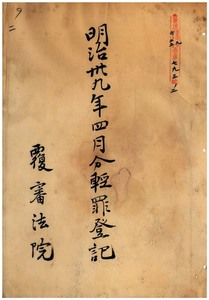 明治卅九年四月分輕罪登記
覆審法院